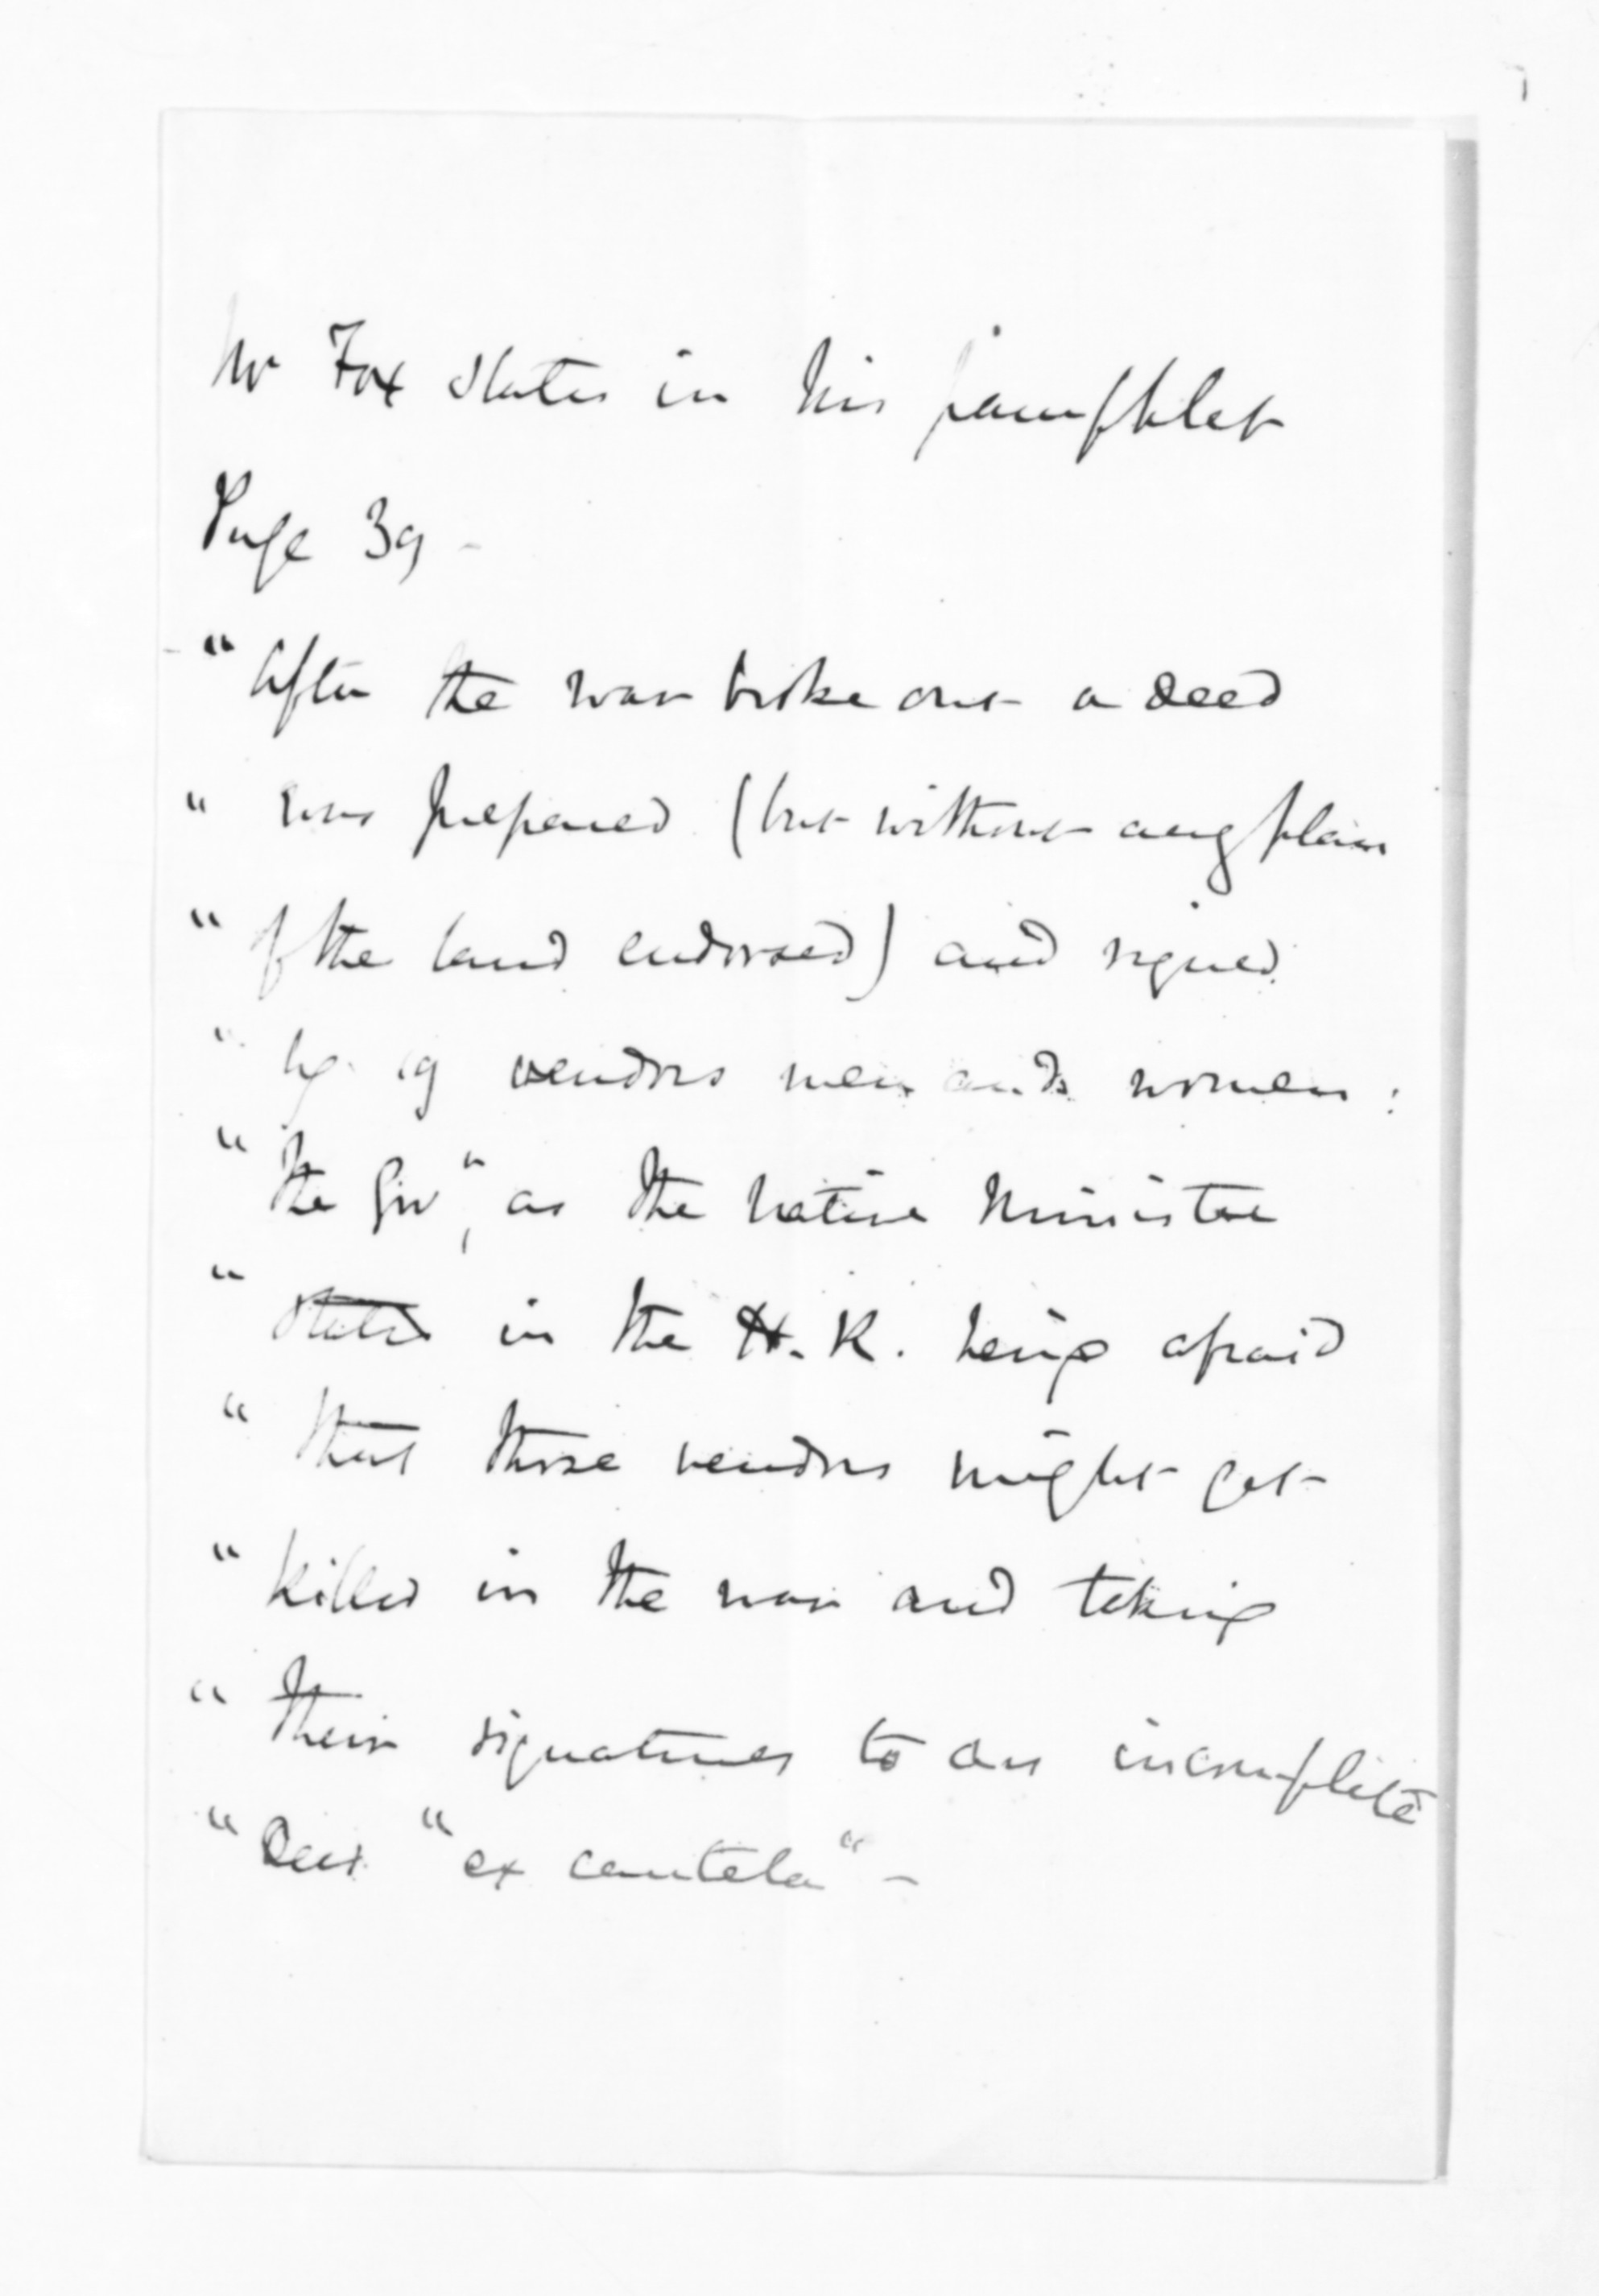 Mr Fox states in his pamphlet
Page 39 -
"After the war broke out a deed
" was prepared (but without any plan
" of the land endorsed) and signed
" by 19 vendors men and women :
" the Gov", as the Native Minister
" stated in the H.R. being afraid
" that those vendors might get
" killed in the war and taking
" their signatures to an incomplete
" Deed "ex cautela" -